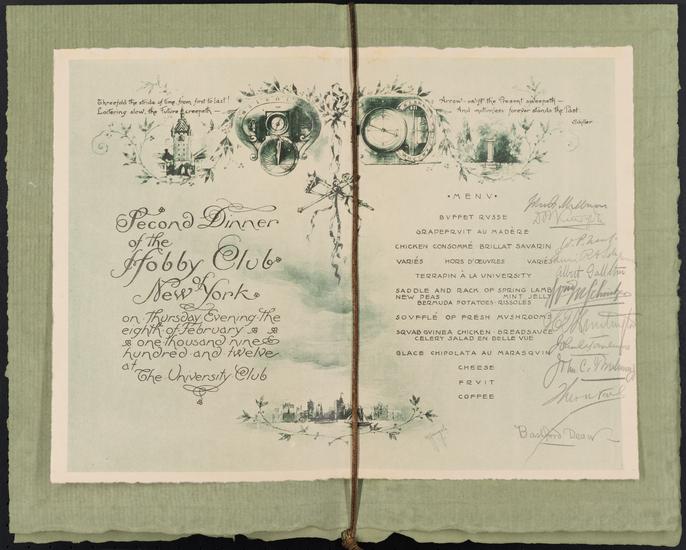 Threefold the stride of time, from first to last!
Loitering slow, the Future creepeth —
Arrow-swift the Present sweepeth —
And motionless forever stands the Past.
Schiller
Second Dinner
of the
Hobby Club
New York
on Thursday Evening the
eighth of February
one thousand nine
hundred and twelve
at
The University Club
· MENV ·
BVFFET RVSSE
GRAPEFRVIT AV MADÈRE
CHICKEN CONSOMMÉ BRILLAT SAVARIN
VARIÉS HORS D'ŒVVRES VARIÉS
TERRAPIN À LA VNIVERSITY
SADDLE AND RACK OF SPRING LAMB
NEW PEAS MINT JELLY
BERMVDA POTATOES·RISSOLES
SOVFFLÉ OF FRESH MVSHROOMS
SQVAB GVINEA CHICKEN·BREADSAVCE
CELERY SALAD EN BELLE VVE
GLACE CHIPOLATA AV MARASQVIN
CHEESE
FRVIT
COFFEE
John C.
Bashford Dean